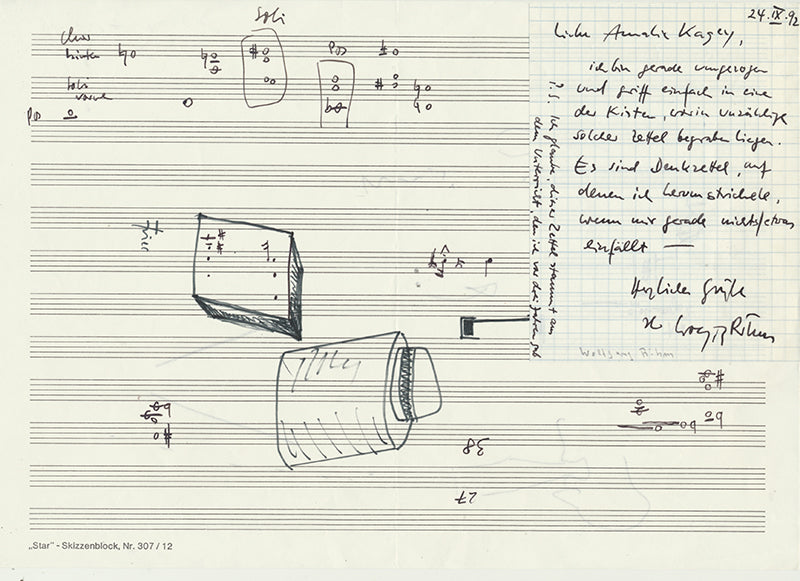 Soli
Chor
hinten
Pos
Soli
vorne
Pos
hier
38
27
„Star" - Skizzenblock, Nr. 307 / 12
24.IX.92
Liebe Annalie Kagey,
ich bin gerade umgezogen
und griff einfach in eine
der Kisten, worin unzählige
solcher Zettel begraben liegen.
Es sind Denkzettel, auf
denen ich herumstrichele,
wenn mir gerade nichts/etwas
einfällt —
Herzliche Grüße
Ihr Wolfgang Rihm
Wolfgang Rihm
P.S. Ich glaube, dieser Zettel stammt aus
dem Unterricht, den ich vor drei Jahren gab